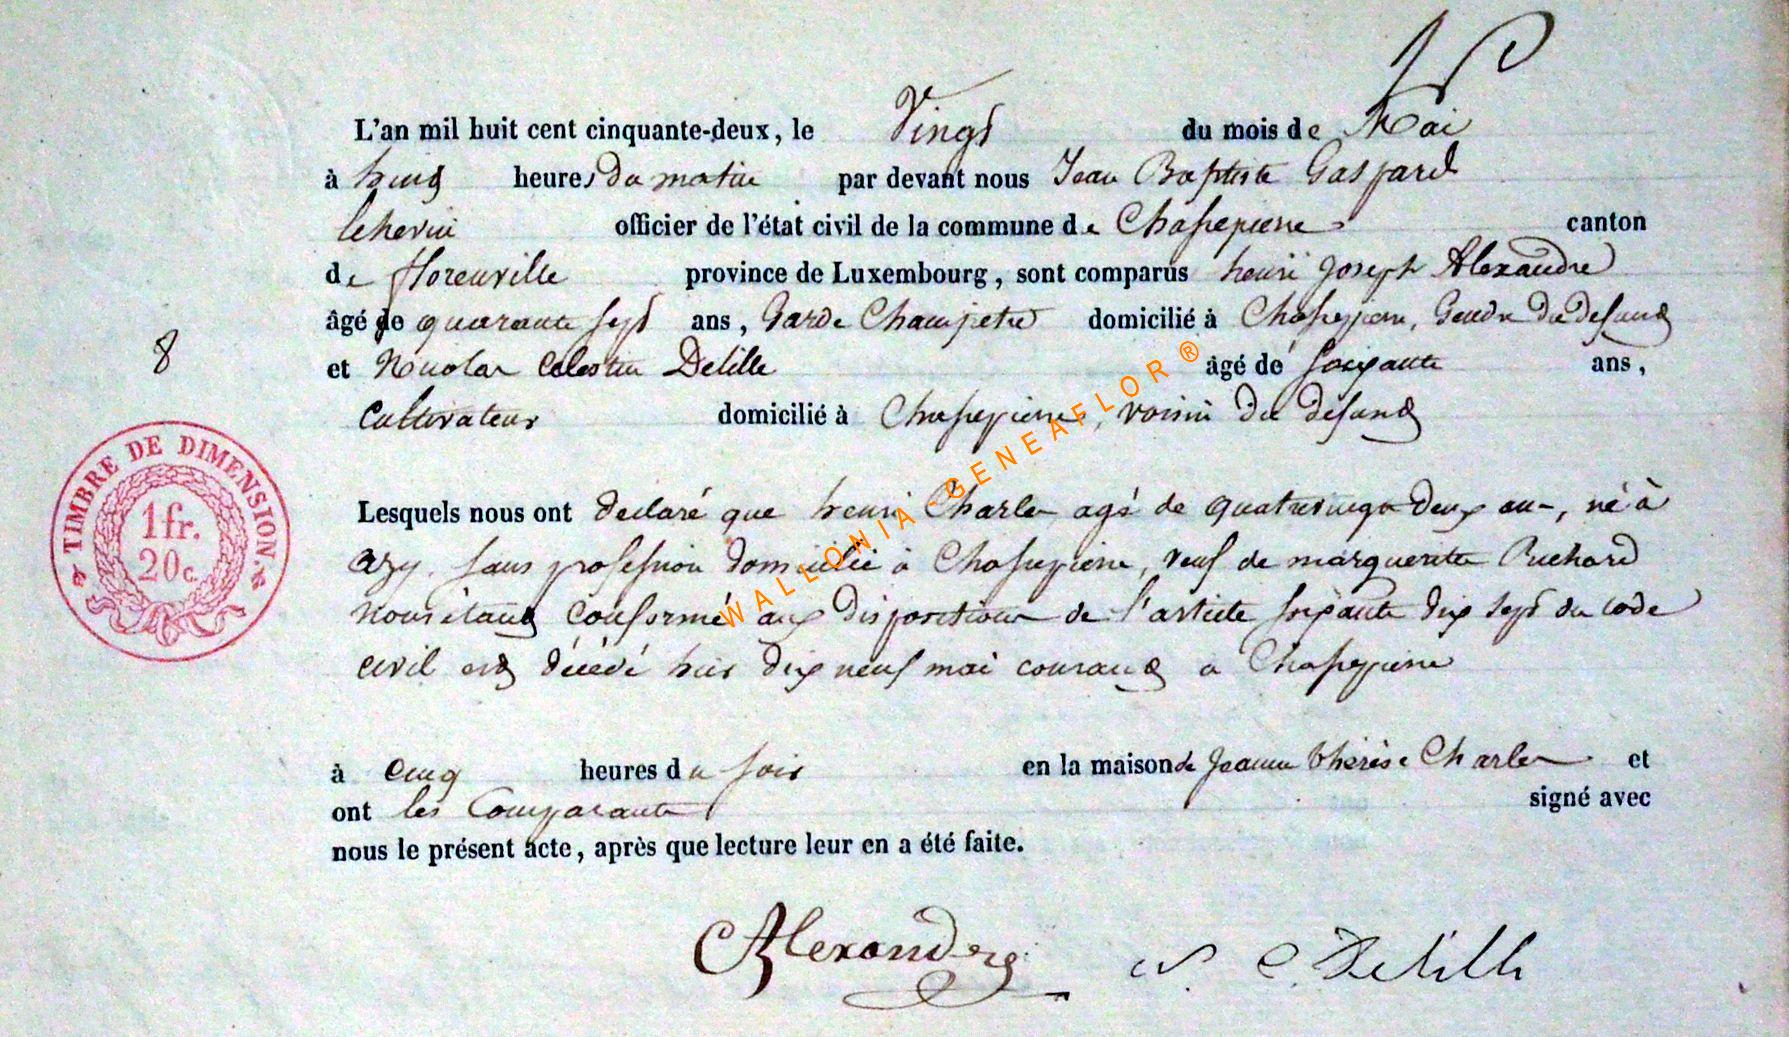 L'an mil huit cent cinquante-deux, le Vingt du mois de Mai
à huit heures du matin par devant nous Jean Baptiste Gaspard
officier de l'état civil de la commune de Chassepierre canton
de florenville province de Luxembourg, sont comparus henri Joseph Alexandre
âgé de quarante sept ans, Garde Champetre domicilié à Chassepierre, Gendre du defunt
et Nicolas Celestin Delille âgé de soixante ans,
Cultivateur domicilié à Chassepierre, voisin du defunt
8
TIMBRE DE DIMENSION.
1 fr.
20 c.
Lesquels nous ont declaré que henri Charles agé de quatrevingt deux ans, né à
azy, sans profession domicilié à Chassepierre, veuf de marguerite Puchard
nous étant conformé aux dispositions de l'article soixante dix sept du code
civil est décédé hier dix neuf mai courant a Chassepierre
à cinq heures du soir en la maison de Jeanne thérèse Charles et
ont les Comparants signé avec
nous le présent acte, après que lecture leur en a été faite.
Alexandre N. C. Delille
WALLONIA-GENEAFLOR ®